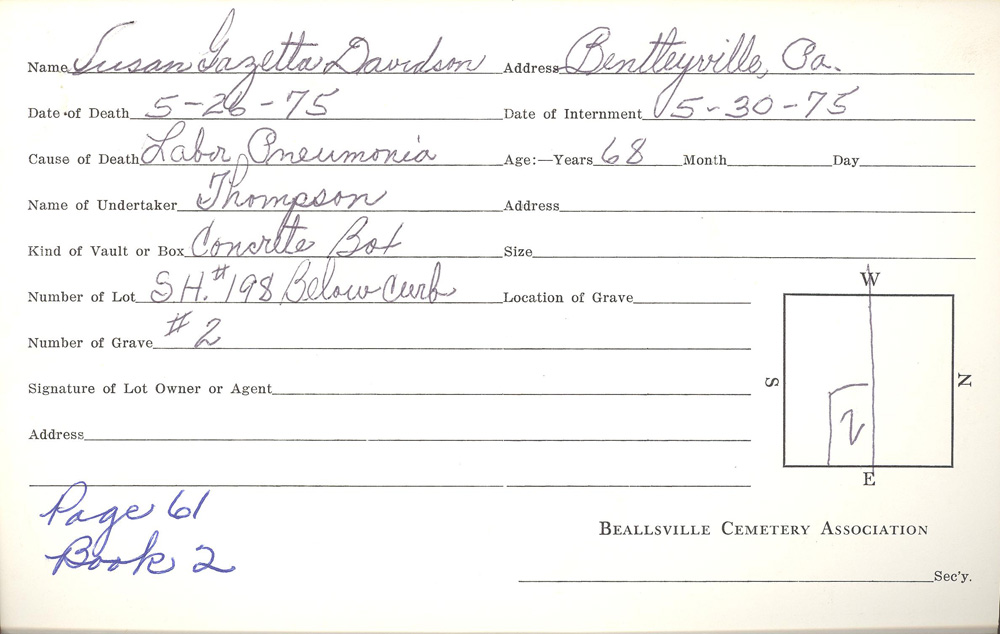 Name Susan Gazetta Davidson Address Bentleyville, Pa.
Date of Death 5-26-75 Date of Internment 5-30-75
Cause of Death Labor Pneumonia Age:—Years 68 Month Day
Name of Undertaker Thompson Address
Kind of Vault or Box Concrete Box Size
Number of Lot SH. #198 Below Curb Location of Grave
Number of Grave #2
Signature of Lot Owner or Agent
Address
W
S
N
2
E
Page 61
Book 2
BEALLSVILLE CEMETERY ASSOCIATION
Sec'y.